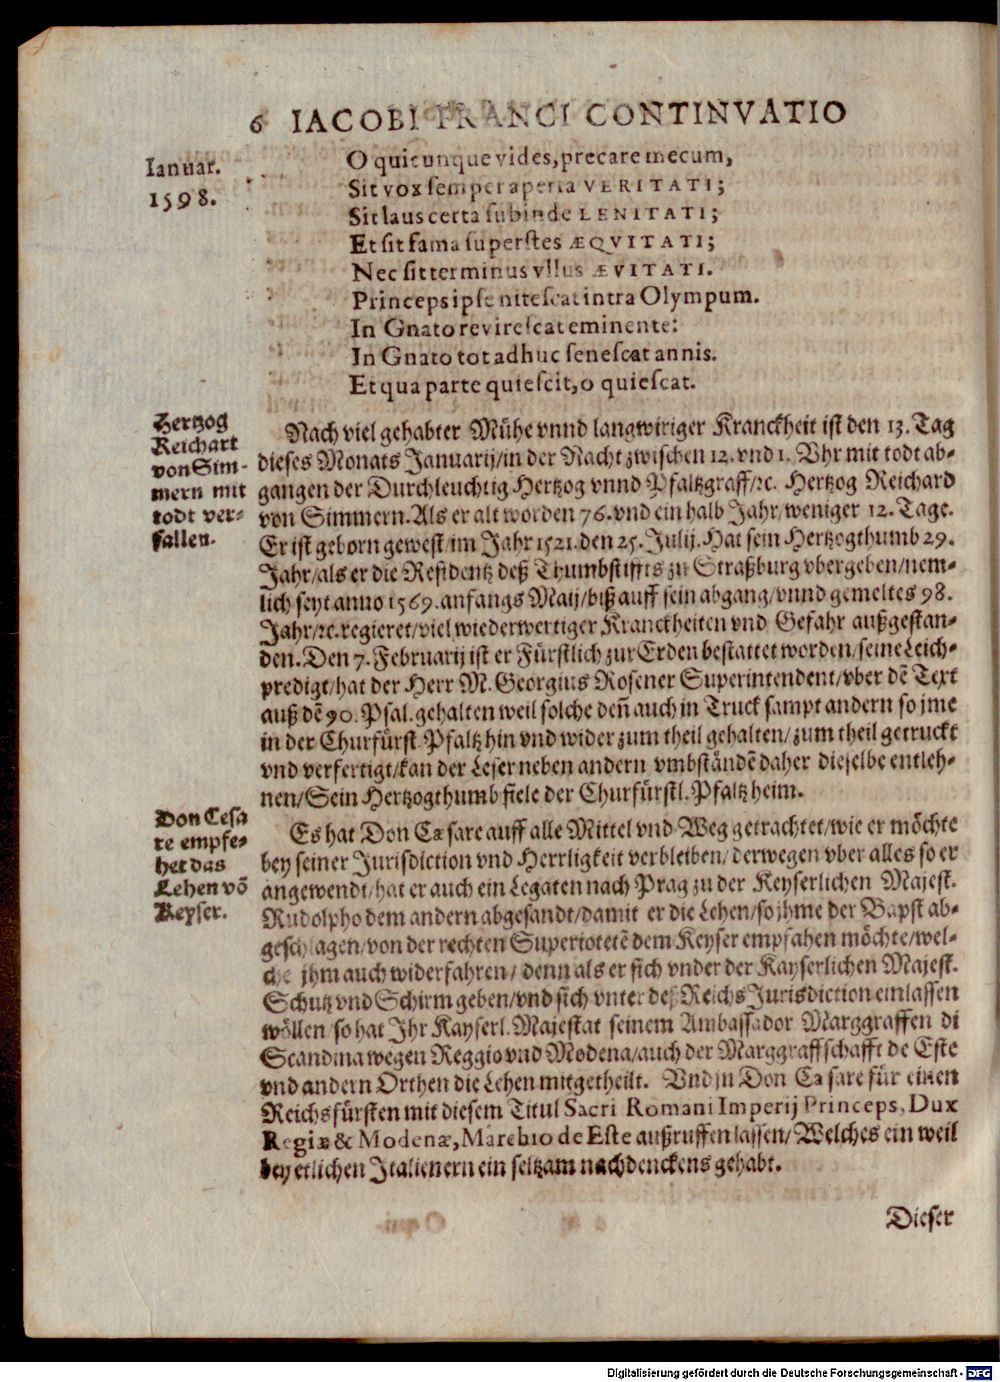 6 IACOBI FRANCI CONTINVATIO
Ianuar.
1598.
O quicunque vides, precare mecum,
Sit vox semper aperta VERITATI;
Sit laus certa subinde LENITATI;
Et sit fama superstes ÆQVITATI;
Nec sit terminus vllus ÆVITATI.
Princeps ipse nitescat intra Olympum.
In Gnato revirescat eminente:
In Gnato tot adhuc senescat annis.
Et qua parte quiescit, o quiescat.
Hertzog
Reichart
von Sim-
mern mit
todt ver-
fallen.
Nach viel gehabter Mühe vnnd langwiriger Kranckheit ist den 13. Tag
dieses Monats Januarij/in der Nacht zwischen 12. vnd 1. Vhr mit todt ab-
gangen der Durchleuchtig Hertzog vnnd Pfaltzgraff/ꝛc. Hertzog Reichard
von Simmern. Als er alt worden 76. vnd ein halb Jahr/weniger 12. Tage.
Er ist geborn gewest/im Jahr 1521. den 25. Julij. Hat sein Hertzogthumb 29.
Jahr/als er die Residentz deß Thumbstiffts zu Straßburg vbergeben/nem-
lich seyt anno 1569. anfangs Maij/biß auff sein abgang/vnnd gemeltes 98.
Jahr/ꝛc. regieret/viel wiederwertiger Kranckheiten vnd Gefahr außgestan-
den. Den 7. Februarij ist er Fürstlich zur Erden bestattet worden/seine Leich-
predigt/hat der Herr M. Georgius Rosener Superintendent/vber dē Text
auß dē 90. Psal. gehalten weil solche deñ auch in Truck sampt andern so jme
in der Churfürst. Pfaltz hin vnd wider zum theil gehalten/zum theil getruckt
vnd verfertigt/kan der Leser neben andern vmbständē daher dieselbe entleh-
nen/Sein Hertzogthumb fiele der Churfürstl. Pfaltz heim.
Don Cesa
re empfe-
het das
Lehen võ
Keyser.
Es hat Don Cæsare auff alle Mittel vnd Weg getrachtet/wie er möchte
bey seiner Jurisdiction vnd Herrligkeit verbleiben/derwegen vber alles so er
angewendt/hat er auch ein Legaten nach Prag zu der Keyserlichen Majest.
Rudolpho dem andern abgesandt/damit er die Lehen/so jhme der Bapst ab-
geschlagen/von der rechten Superiotetē dem Keyser empfahen möchte/wel-
che jhm auch widerfahren/denn als er sich vnder der Kayserlichen Majest.
Schutz vnd Schirm geben/vnd sich vnter deß Reichs Jurisdiction einlassen
wöllen/so hat Ihr Kayserl. Majestat seinem Ambassador Marggraffen di
Scandina wegen Reggio vnd Modena/auch der Marggraffschafft de Este
vnd andern Orthen die Lehen mitgetheilt. Vnd jn Don Cæsare für einen
Reichsfürsten mit diesem Titul Sacri Romani Imperij Princeps, Dux
Regiæ & Modenæ, Marchio de Este außruffen lassen/Welches ein weil
bey etlichen Italienern ein seltzam nachdenckens gehabt.
Dieser
Digitalisierung gefördert durch die Deutsche Forschungsgemeinschaft - DFG